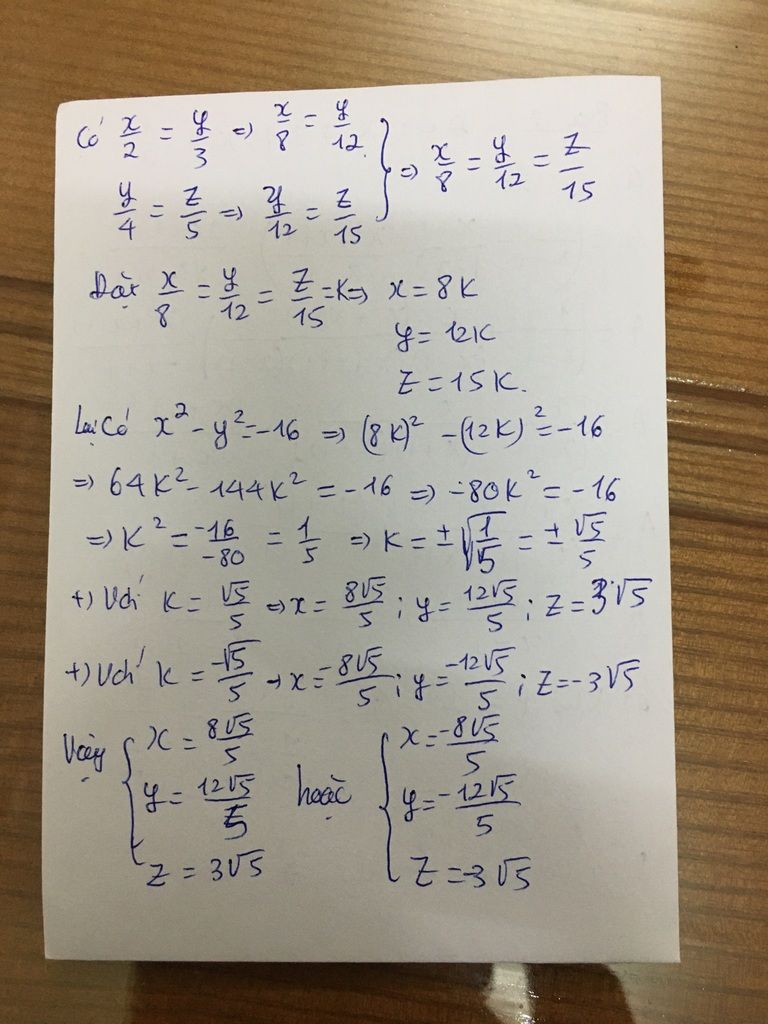 Có x/2 = y/3 => x/8 = y/12
y/4 = z/5 => y/12 = z/15 } => x/8 = y/12 = z/15
Đặt x/8 = y/12 = z/15 = K => x = 8K
y = 12K
z = 15K.
Lại Có x² - y² = -16 => (8K)² - (12K)² = -16
=> 64K² - 144K² = -16 => -80K² = -16
=> K² = -16/-80 = 1/5 => K = ±√(1/5) = ± √5/5
+) Với K = √5/5 => x = 8√5/5 ; y = 12√5/5 ; z = 3√5
+) Với K = -√5/5 -> x = -8√5/5 ; y = -12√5/5 ; z = -3√5
Vậy { x = 8√5/5
y = 12√5/5
z = 3√5
hoặc { x = -8√5/5
y = -12√5/5
z = -3√5